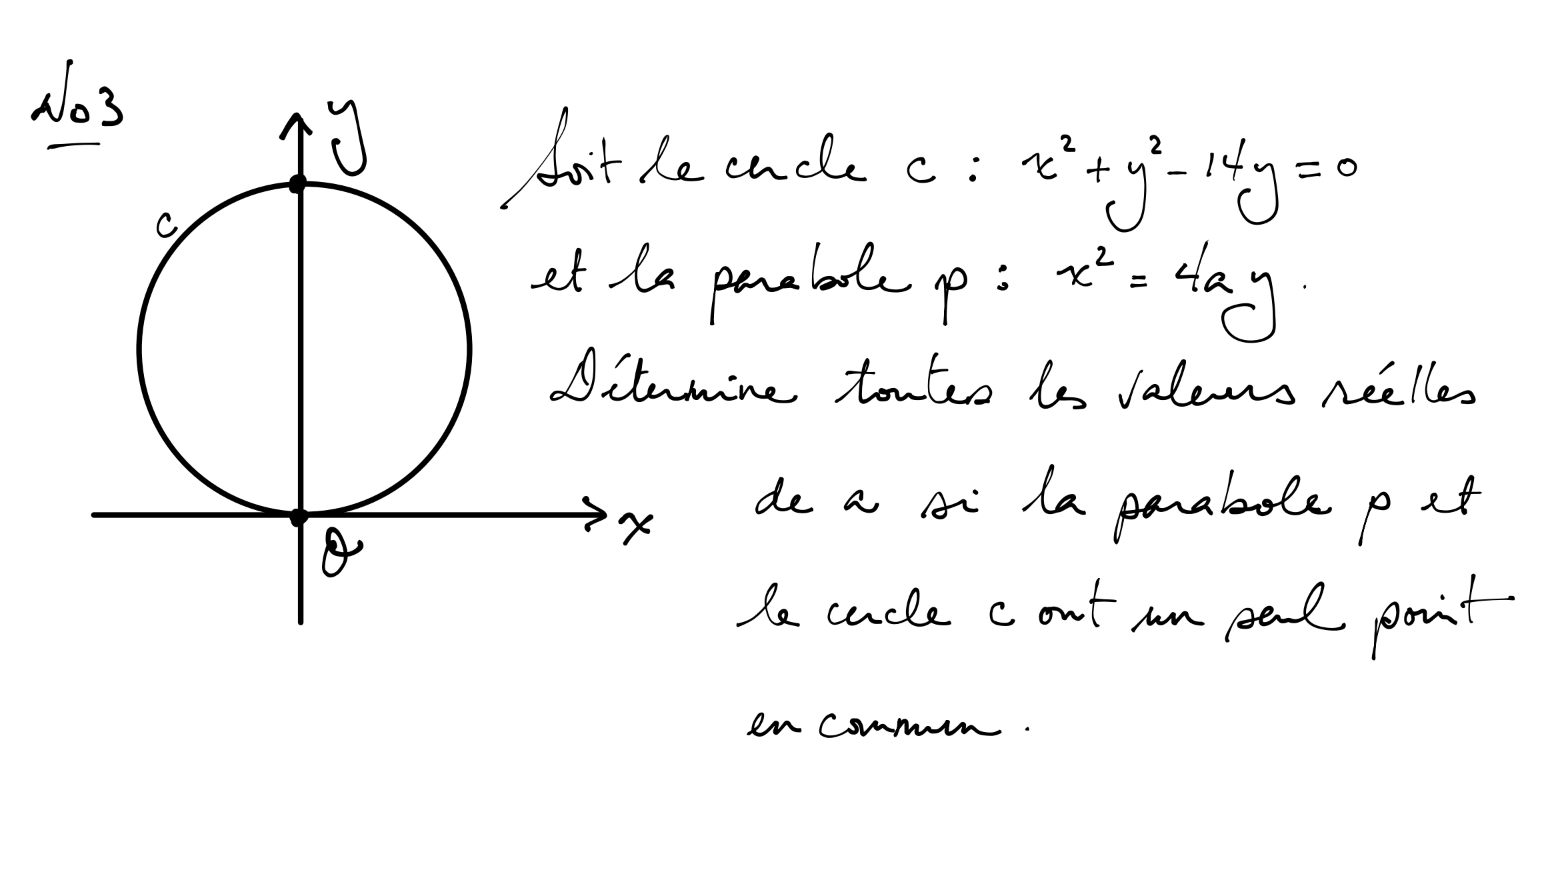 No3
y
c
x
O
Soit le cercle c : x² + y² - 14y = 0
et la parabole p : x² = 4ay.
Détermine toutes les valeurs réélles
de a si la parabole p et
le cercle c ont un seul point
en commun.